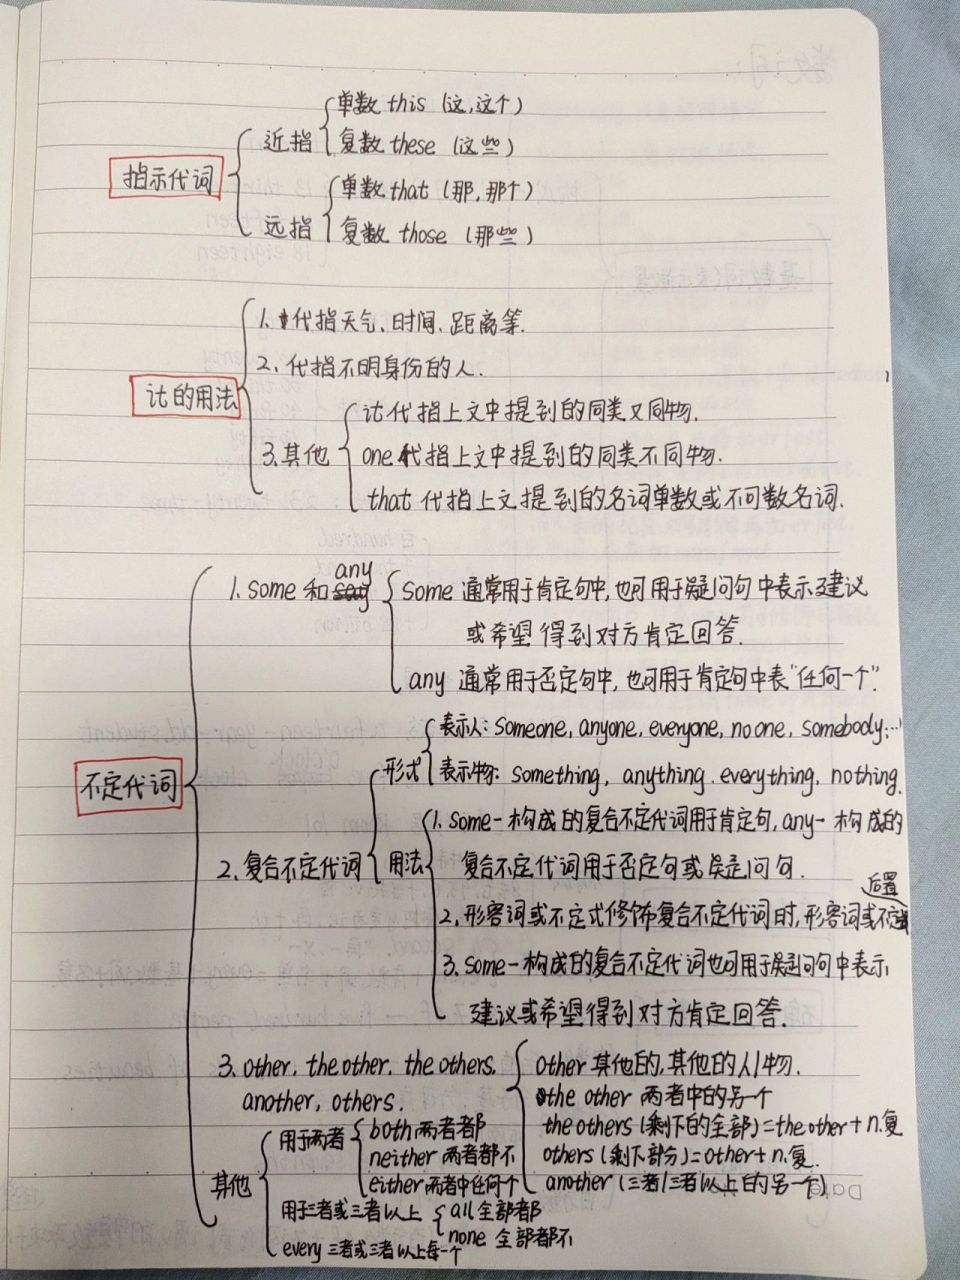 单数 this (这,这个)
近指
复数 these (这些)
指示代词
单数 that (那,那个)
远指
复数 those (那些)
1. 代指天气、时间、距离等.
2. 代指不明身份的人.
it的用法
it代指上文中提到的同类又同物.
3.其他
one代指上文中提到的同类不同物.
that 代指上文提到的名词单数或不可数名词.
any
1. some 和
some 通常用于肯定句中,也可用于疑问句中表示建议
或希望得到对方肯定回答.
any 通常用于否定句中,也可用于肯定句中表“任何一个”.
不定代词
形式
表示人: someone, anyone, everyone, no one, somebody...
表示物: something, anything. everything, nothing.
2.复合不定代词
用法
1. some-构成的复合不定代词用于肯定句, any-构成的
复合不定代词用于否定句或疑问句.
后置
2. 形容词或不定式修饰复合不定代词时,形容词或不定式
3. some-构成的复合不定代词也可用于疑问句中表示
建议或希望得到对方肯定回答.
3. other, the other, the others,
another, others.
other 其他的,其他的人/物.
the other 两者中的另一个
the others (剩下的全部)=the other+n.复
others (剩下部分)=other+n.复.
another (三者/三者以上的另一个)
其他
用于两者
both 两者都
neither 两者都不
either 两者中任何个
用于三者或三者以上
all 全部都
none 全部都不
every 三者或三者以上每一个